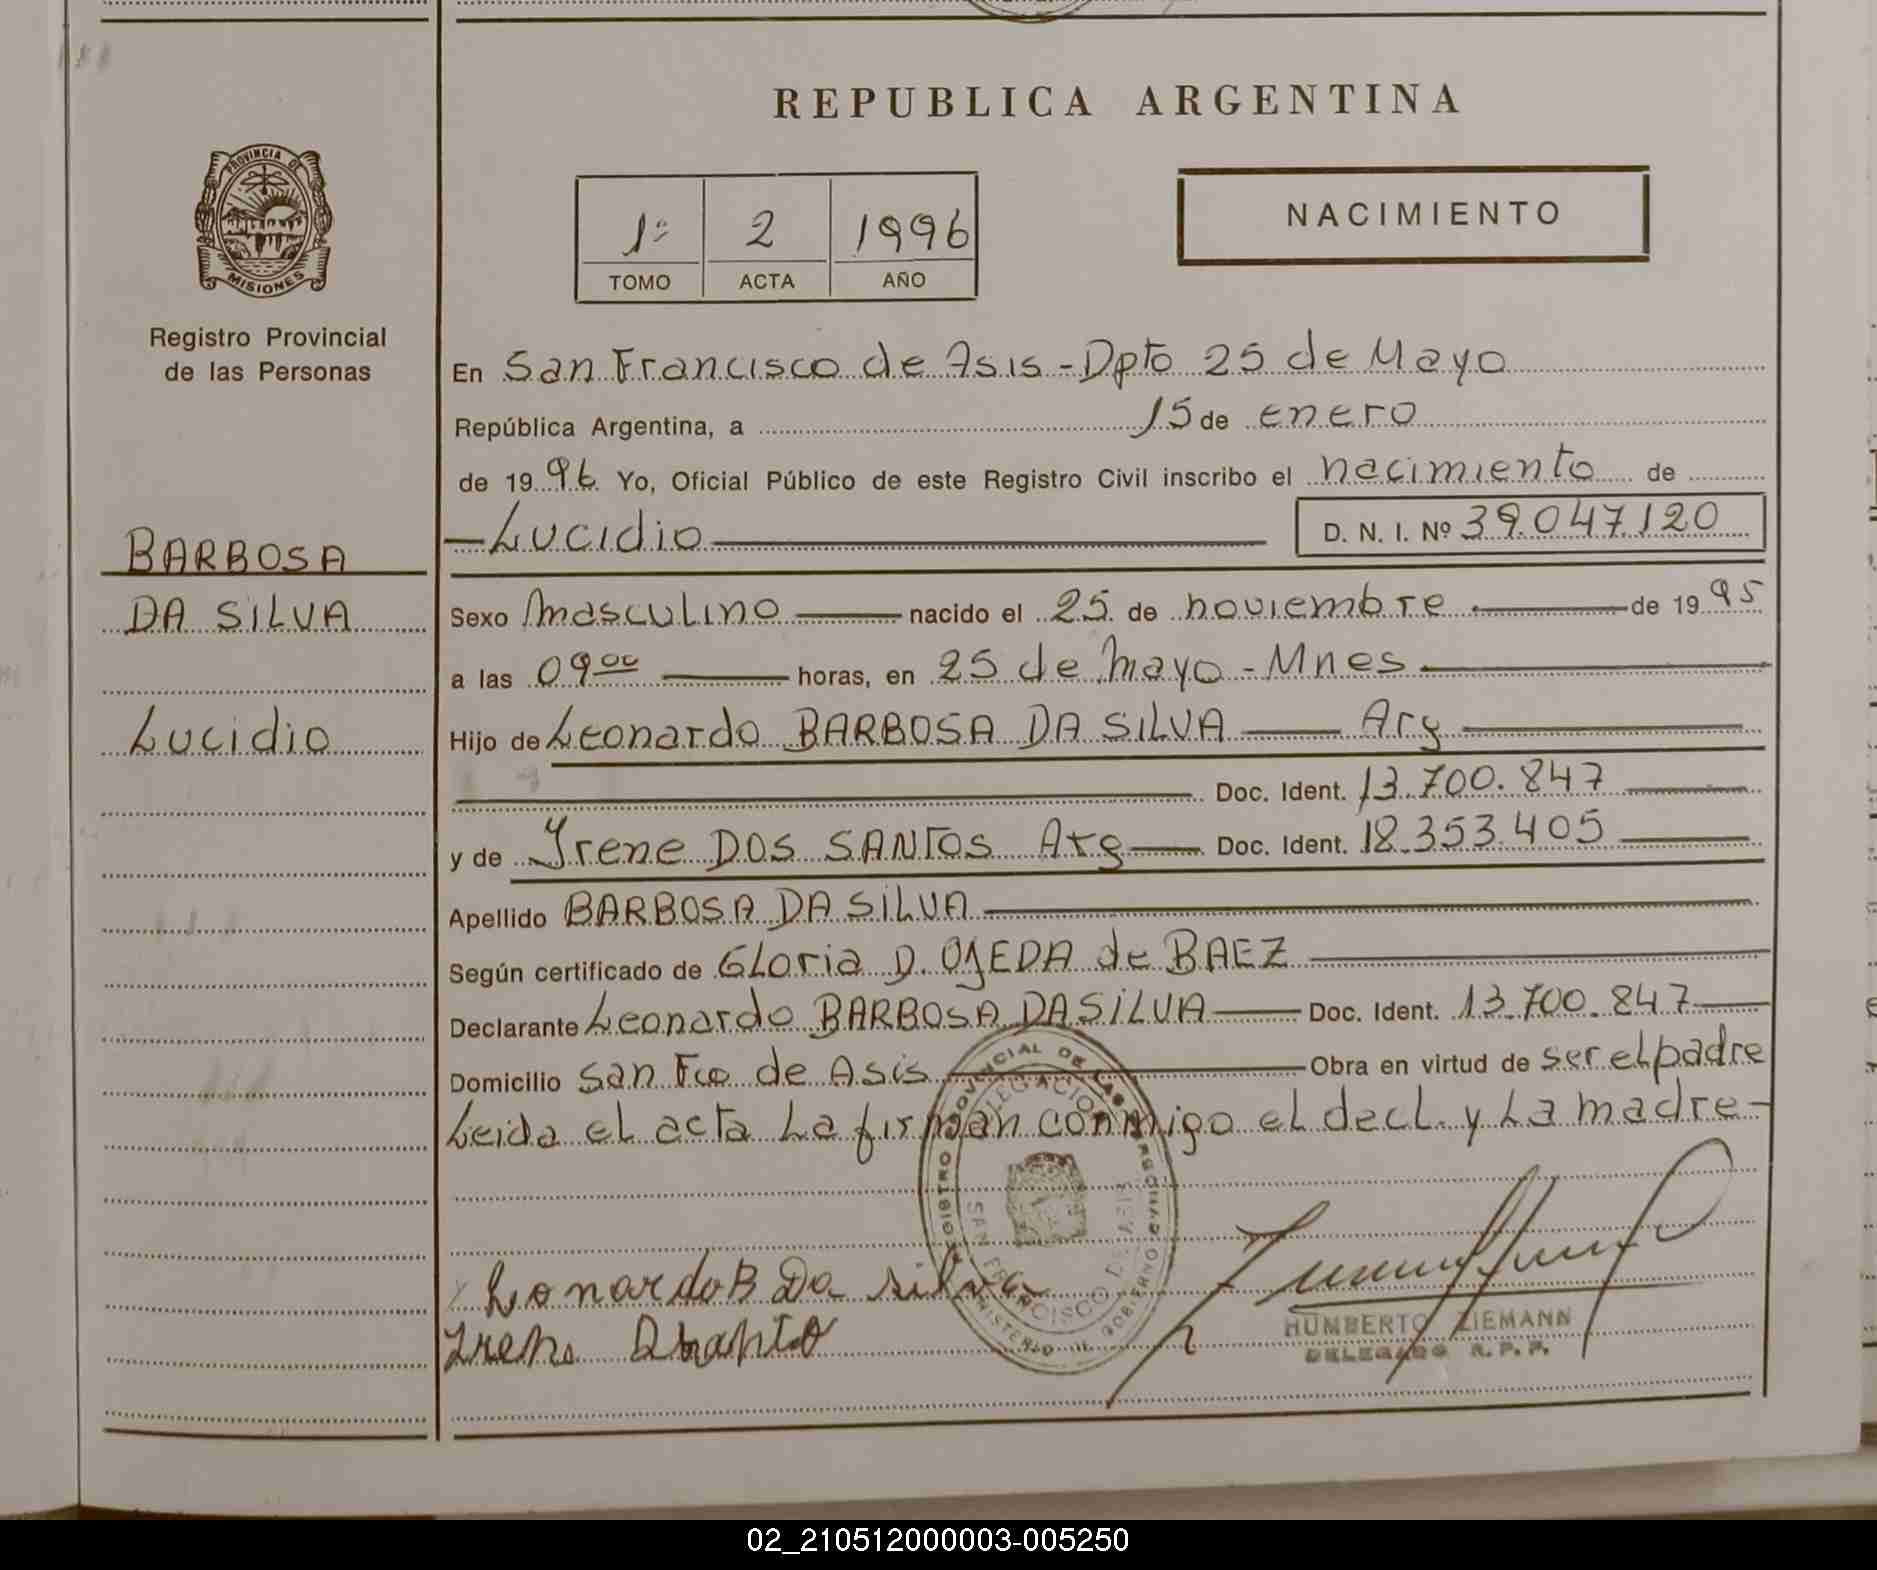 REPUBLICA ARGENTINA
PROVINCIA DE
MISIONES
Registro Provincial
de las Personas
BARBOSA
DA SILVA
Lucidio
1º 2 1996
TOMO ACTA AÑO
NACIMIENTO
En San Francisco de Asis - Dpto 25 de Mayo
República Argentina, a 15 de enero
de 1996 Yo, Oficial Público de este Registro Civil inscribo el nacimiento de
Lucidio D. N. I. Nº 39.047.120
Sexo masculino nacido el 25 de noviembre de 1995
a las 09 00 horas, en 25 de mayo - Mnes
Hijo de Leonardo BARBOSA DA SILVA Arg
Doc. Ident. 13.700.847
y de Irene DOS SANTOS Arg Doc. Ident. 18.353.405
Apellido BARBOSA DA SILVA
Según certificado de Gloria D. OJEDA de BAEZ
Declarante Leonardo BARBOSA DA SILVA Doc. Ident. 13.700.847
Domicilio San Fco de Asis Obra en virtud de ser el padre
Leida el acta La firman conmigo el decl. y La madre-
SAN FRANCISCO DE ASIS
Leonardo B Da silva
HUMBERTO ZIEMANN
DELEGADO R. P. P.
02_210512000003-005250